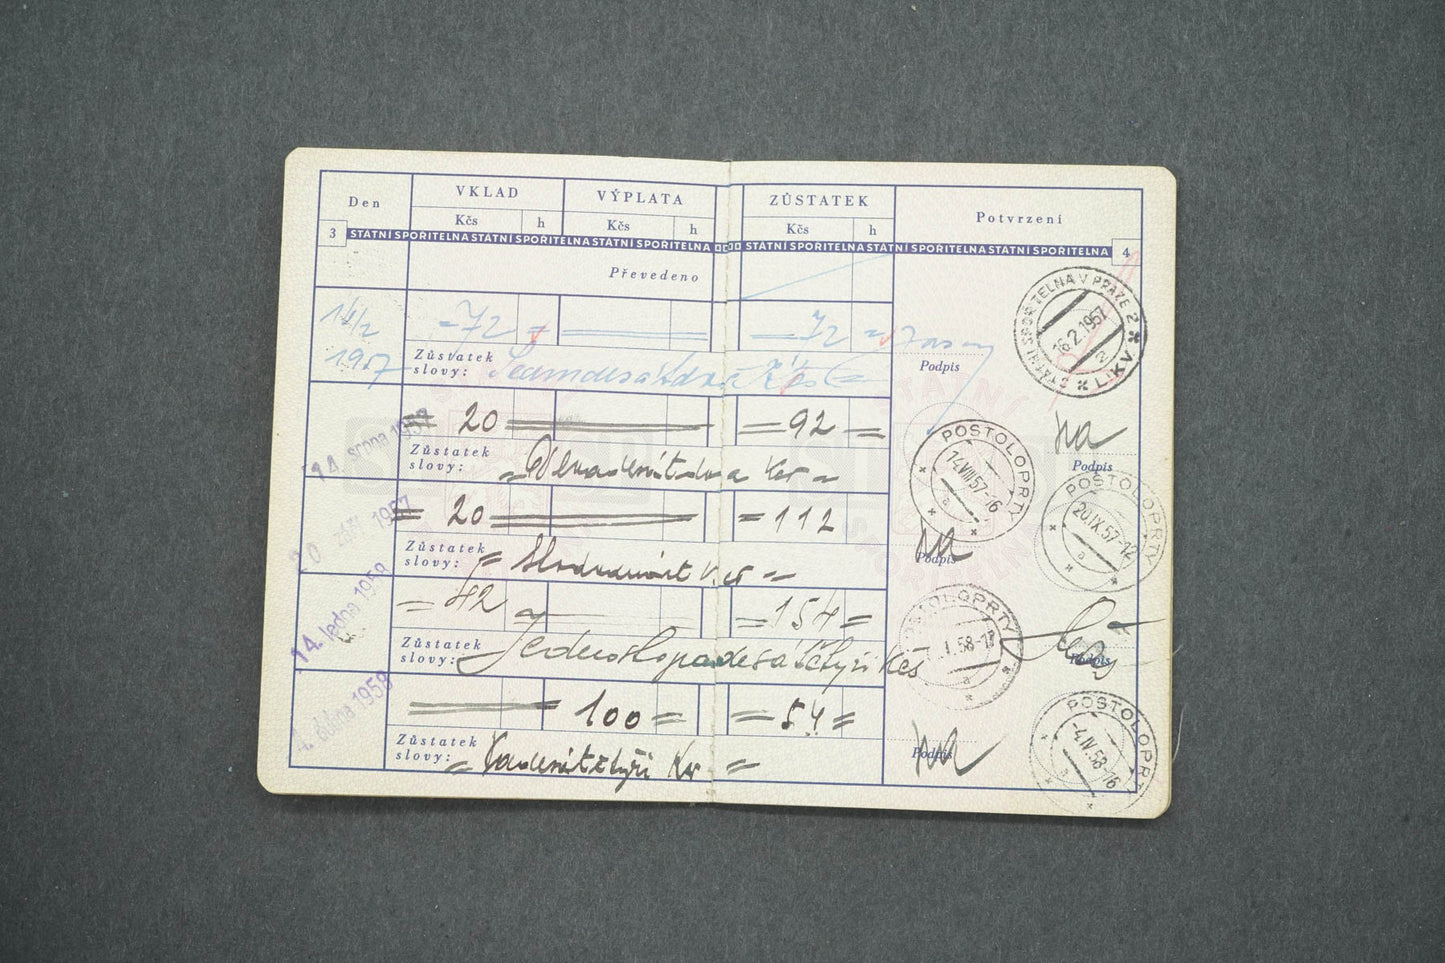 Den VKLAD VÝPLATA ZŮSTATEK Potvrzení
Kčs h Kčs h Kčs h
3 STÁTNÍ SPOŘITELNA STÁTNÍ SPOŘITELNA STÁTNÍ SPOŘITELNA STÁTNÍ SPOŘITELNA STÁTNÍ SPOŘITELNA STÁTNÍ SPOŘITELNA 4
Převedeno
14/2 =72= =72=
1957 Zůstatek
slovy: Sedmdesátdva Kčs= Podpis
STÁTNÍ SPOŘITELNA V PRAZE 2 LIKV
16.2.1957
14. srpna 1957 = 20 = =92=
Zůstatek
slovy: = Devadesátdva Kčs = Podpis
POSTOLOPRTY
14.VIII.57-16
a
20 září 1957 = 20 = =112
Zůstatek
slovy: = Stodvanáct Kčs = Podpis
POSTOLOPRTY
20.IX.57-12
a
14. ledna 1958 = 42 = =154=
Zůstatek
slovy: Jednostopadesátčtyři Kčs Podpis
POSTOLOPRTY
.I.58-12
a
4. dubna 1958 = 100 = =54=
Zůstatek
slovy: = Padesátčtyři Kčs = Podpis
POSTOLOPRTY
-4.IV.58-16
a